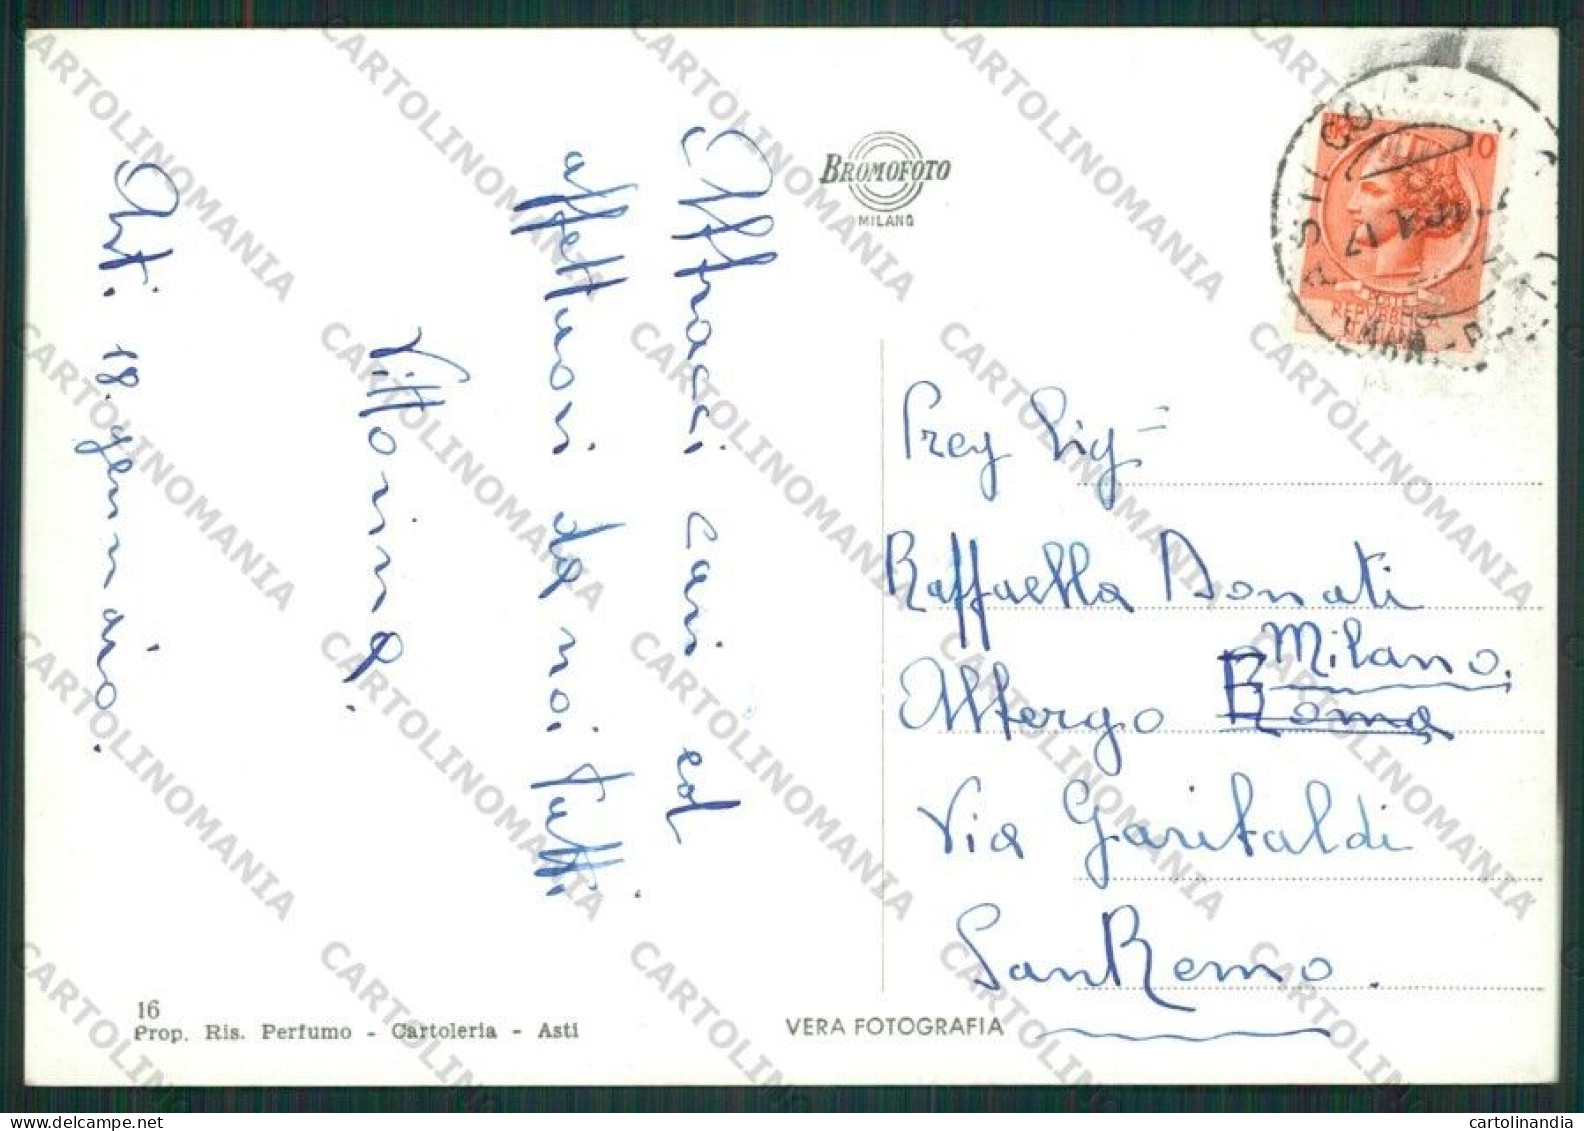 Abbracci cari ed
affettuosi da noi tutti.
Vittorina.
Asti. 18. gennaio.
BROMOFOTO
MILANO
ASTI
POSTE
REPUBBLICA
Preg Sig=
Raffaella Donati
Milano.
Albergo Roma
Via Garibaldi
San Remo.
16
Prop. Ris. Perfumo - Cartoleria - Asti
VERA FOTOGRAFIA
CARTOLINOMANIA
cartolinandia